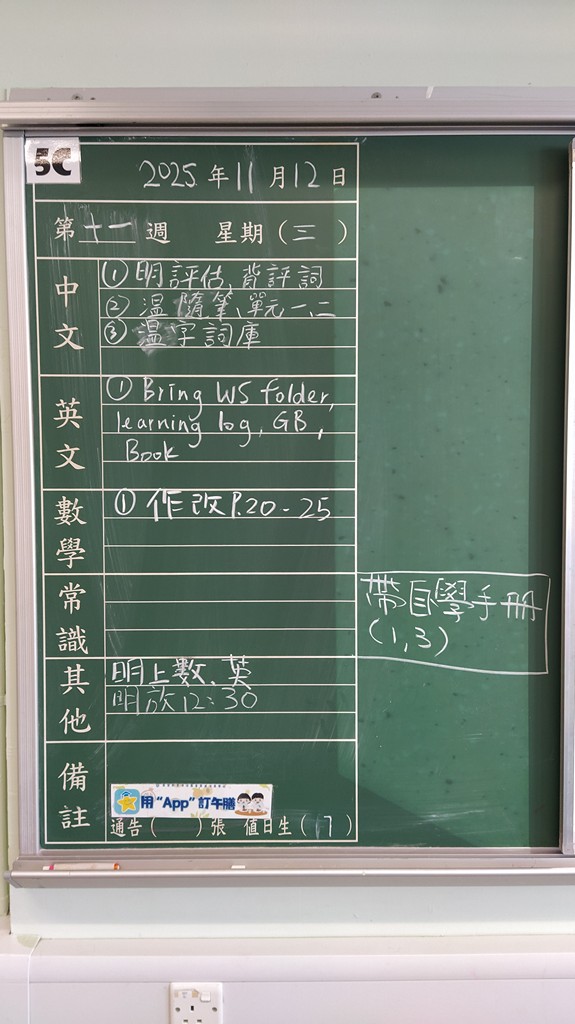 5C
2025年11月12日
第十一週 星期(三)
中文
①明評估,背評詞
②温 隨筆、單元一、二
③温字詞庫
英文
① Bring WS folder,
learning log, GB,
Book
數學
① 作改P.20-25
常識
帶自學手冊
(1,3)
其他
明上數、英
明放12:30
備註
用“App”訂午膳
通告( )張 值日生(7)